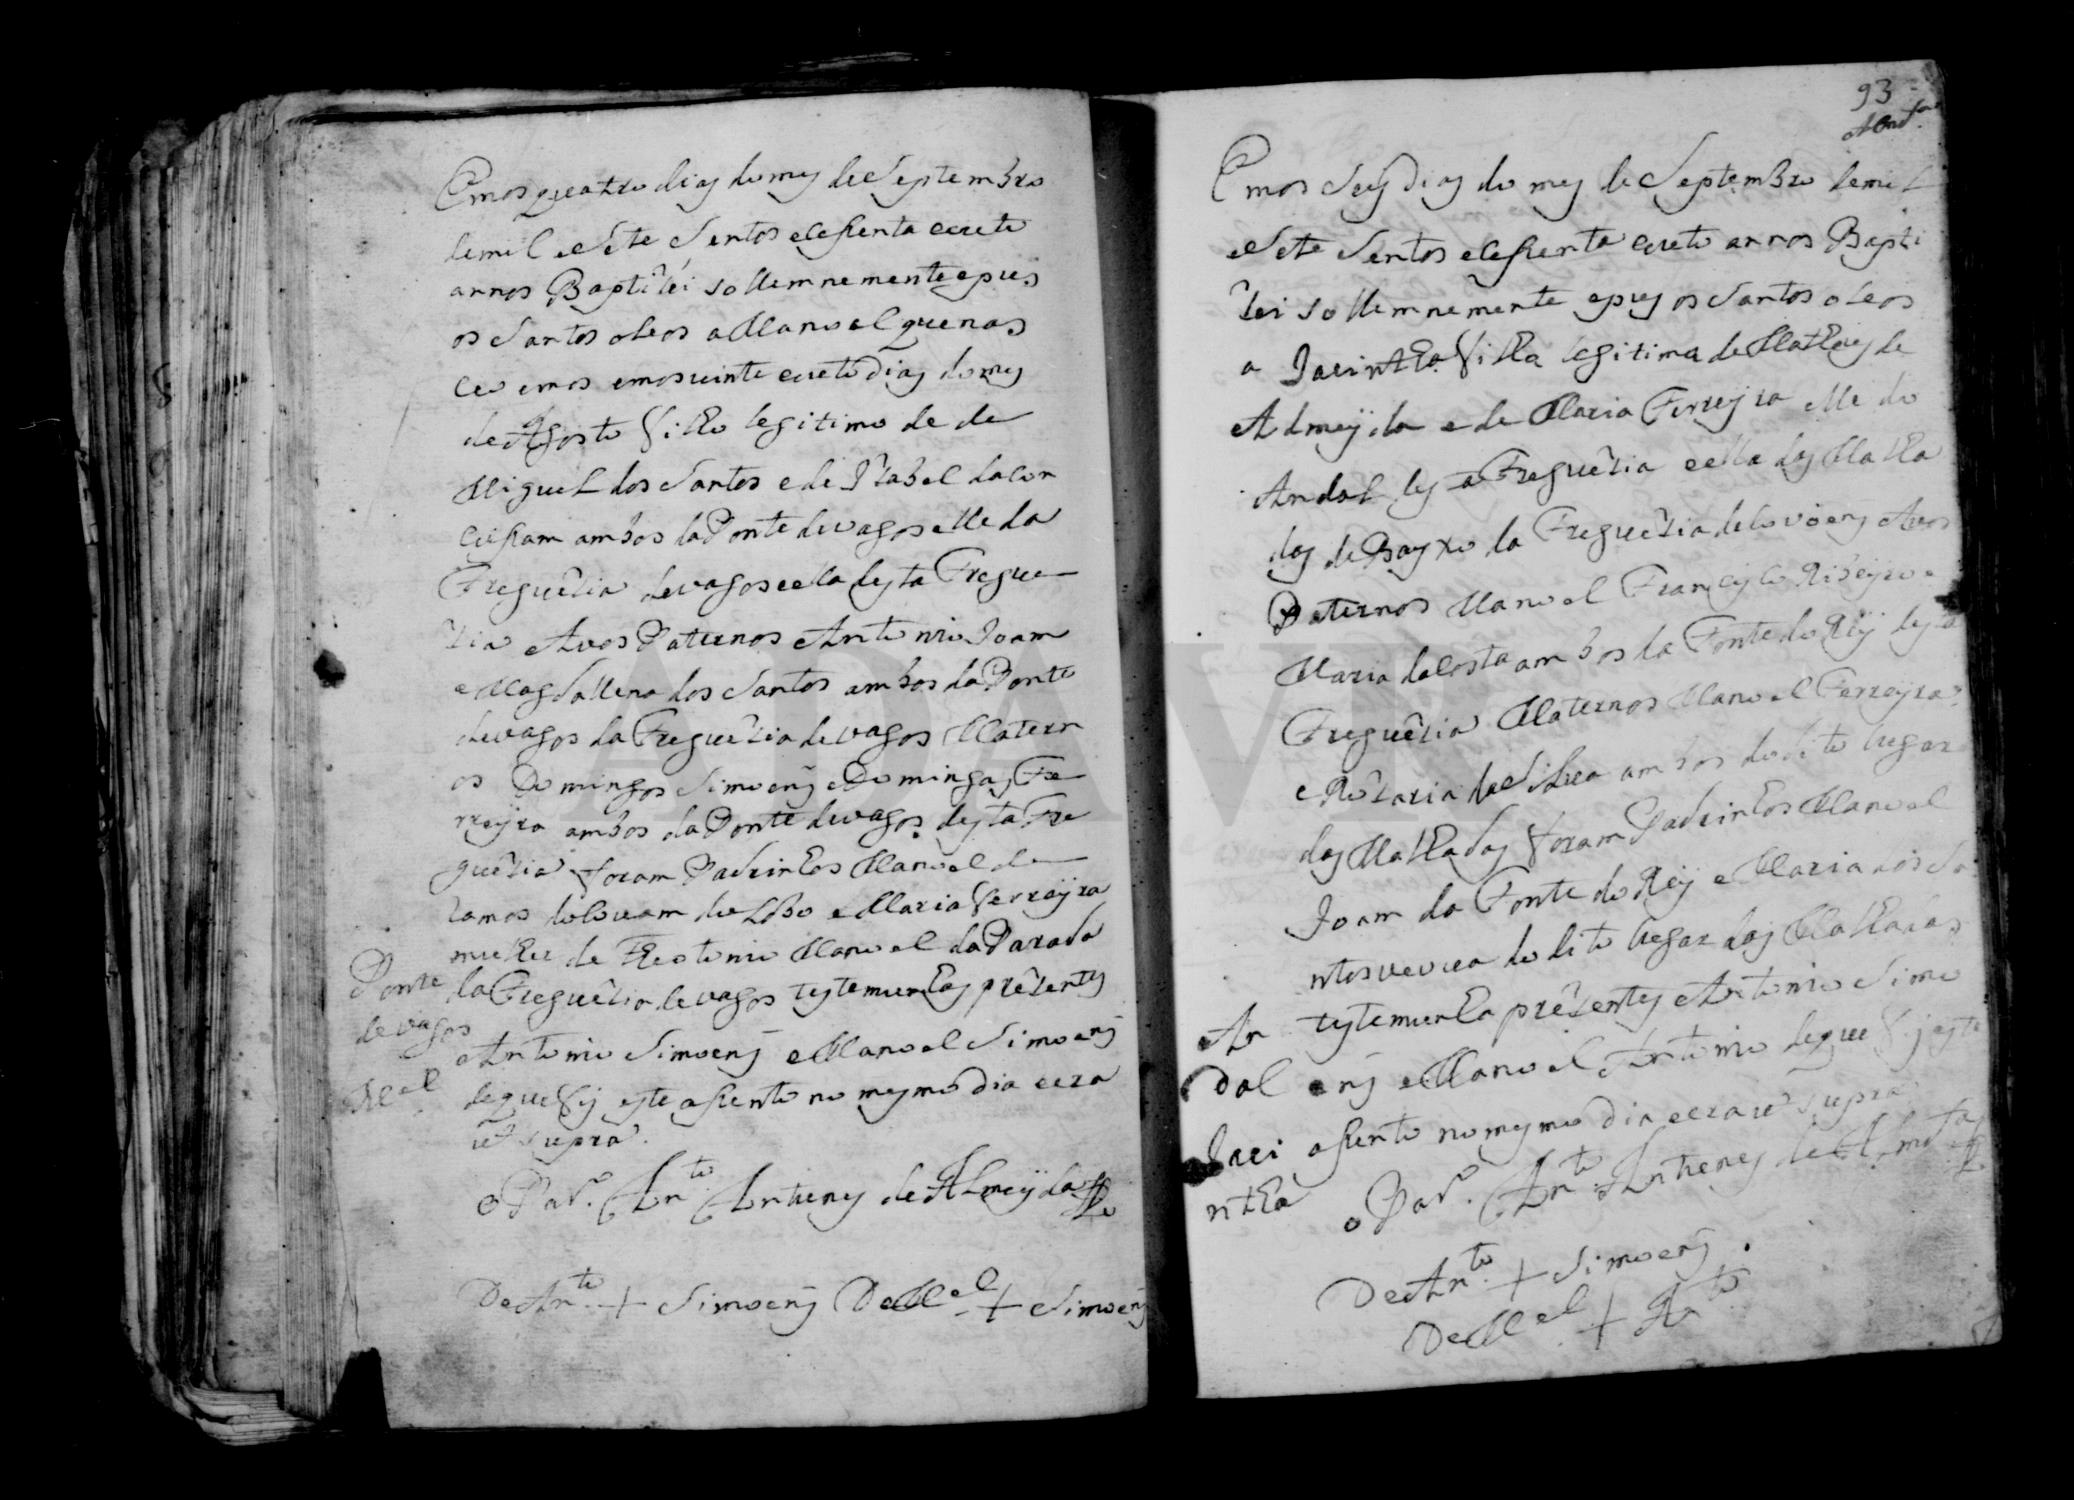 Emos quatro dias do mes de Septembro
de mil e Sete Sentos e cesenta e outo
annos Baptizei sollemnemente e pus
os Santos oleos a Manoel que nas
ceo emos emos vinte e outo dias do mes
de Agosto filho legitimo de de
Miguel dos Santos e de Izabel da Con
ceisam ambos da Ponte de vagos elle da
Freguezia de vagos e ella desta Fregue
zia Avos Paternos Antonio Joam
e Magdallena dos Santos ambos da Ponte
de vagos da Freguezia de vagos Matern
os Domingos Simoens e Domingas Fe
rreyra ambos da Ponte de vagos desta Fre
guezia foram Padrinhos Manoel de
Lamos do Covam do Lobo e Maria ferreyra
mulher de Theotonio Manoel da Parada
da Freguezia de vagos testemunhas prezentes
Antonio Simoens e Manoel Simoens
de que fis este asento no mesmo dia e era
ut supra.
o Par.º Ant.º Antunes de Almeyda
De Ant.º + Simoens De M.el + Simoens
Ponte
de vagos
M.el
93
Emos Seis dias do mes de Septembro de mil
e Sete Sentos e cesenta e outo annos Bapti
zei sollemnemente e pus os Santos oleos
a Jacintha filha legitima de Matheus de
Almeyda e de Maria Ferreyra elle do
Andal desta Freguezia e ella das Malha
das de Bayxo da Freguezia de Covoens Avos
Paternos Manoel Francisco Ribeyro e
Maria da Costa ambos da Fonte do Rey desta
Freguezia Maternos Manoel Ferreyra
e Rozaria da Silva ambos do dito lugar
das Malhadas foram Padrinhos Manoel
Joam da Fonte do Rey e Maria dos Sa
ntos veuva do dito lugar das Malhadas
testemunha prezentes Antonio Simo
ens e Manoel Antonio de que fis este
asento no mesmo dia e era ut supra
o Par.º Ant.º Antunes de Alm.da
De Ant.º + Simoens
De M.el + An.to
An
dal
Jaci
ntha